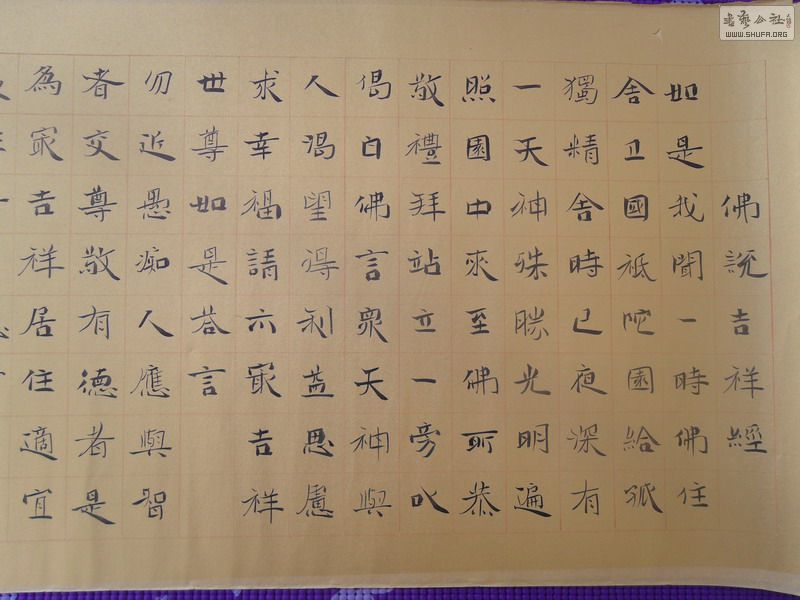 佛說吉祥經
如是我聞一時佛住
舍卫國祗陀園給孤
獨精舍時已夜深有
一天神殊勝光明遍
照園中來至佛所恭
敬禮拜站立一旁以
偈白佛言衆天神與
人渴望得利益思慮
求幸福請示最吉祥
世尊如是答言
勿近愚痴人應與智
者交尊敬有德者是
為最吉祥居住適宜
書藝公社
WWW.SHUFA.ORG